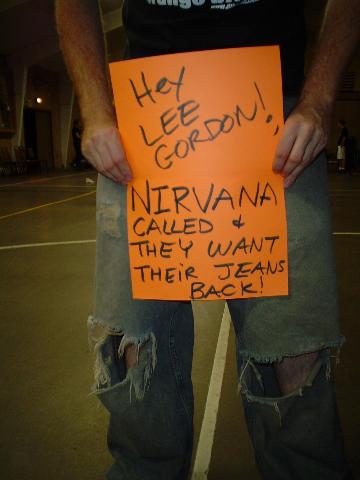 Hey
LEE
GORDON!
NIRVANA
CALLED &
THEY WANT
THEIR JEANS
BACK!